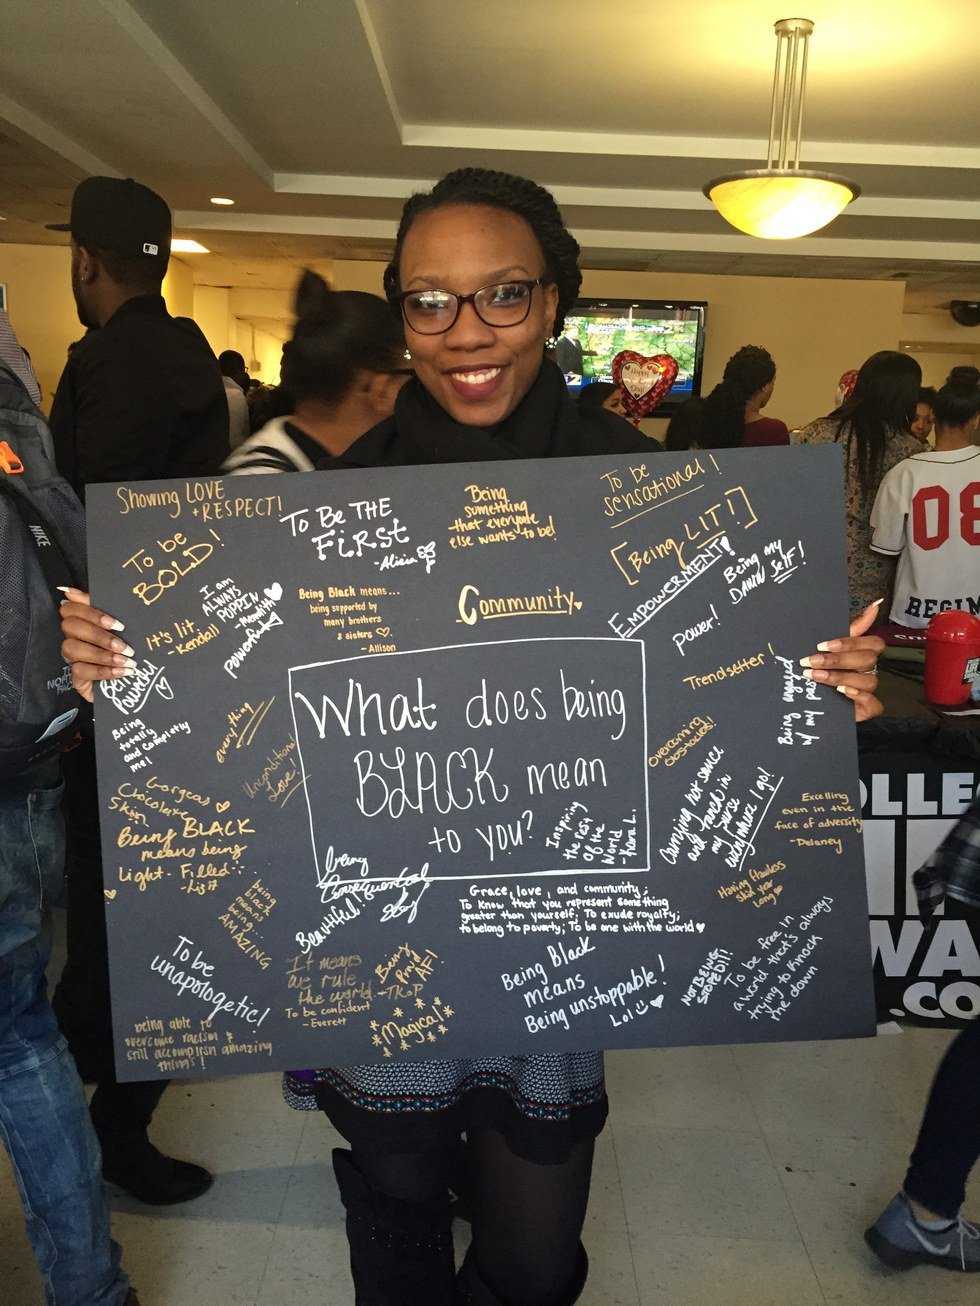 Showing LOVE
+ RESPECT!
To Be THE
FiRST
- Alicia
Being
something
that everyone
else wants to be!
To be
sensational!
[Being LIT!]
To be
BOLD!
I am
ALWAYS
POPPIN
It's lit.
- Kendall
powerful
Being Black means...
being supported by
many brothers
& sisters ♡.
- Allison
Community
EMPOWERMENT!
Being my
DAMN SELF!
power!
Trendsetter!
Being
powerful
Being
totally
and completly
me!
everything
Unconditional
Love!
What does being
BLACK mean
to you?
Inspiring
the rest
Of the
World
Overcoming
obstacles!
Being
w/ my past
Carrying hot sauce
my purse
everywhere I go!
Excelling
even in the
face of adversity
- Delaney
Gorgeous
Chocolate
Skin
Being BLACK
means being
Light-Filled
being
black
means
being...
AMAZING
Beautiful!
Grace, love, and community;
To Know that you represent something
greater than yourself; To exude royalty;
to belong to poverty; To be one with the world
Having flawless
skin year
long
To be
unapologetic!
It means
we rule
the world.
To be confident
- Everett
Being
Proud
AF!
*Magical*
Being Black
means
Being unstoppable!
Lol
Not Being
STOPPED!!
To be free in
a world that's always
trying to knock
me down
being able to
overcome racism &
still accomplish amazing
things!
NIKE
08
REGIN
OLLE
WA
.CO